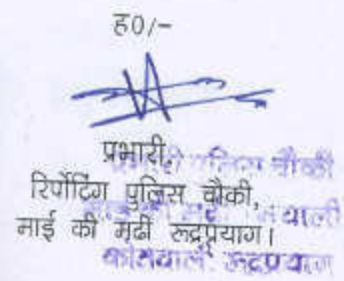 ह0/-
प्रभारी,
रिर्पोटिंग पुलिस चौकी,
माई की मढी रूद्रप्रयाग।
पुलिस चौकी
कोतवाली रूद्रप्रयाग